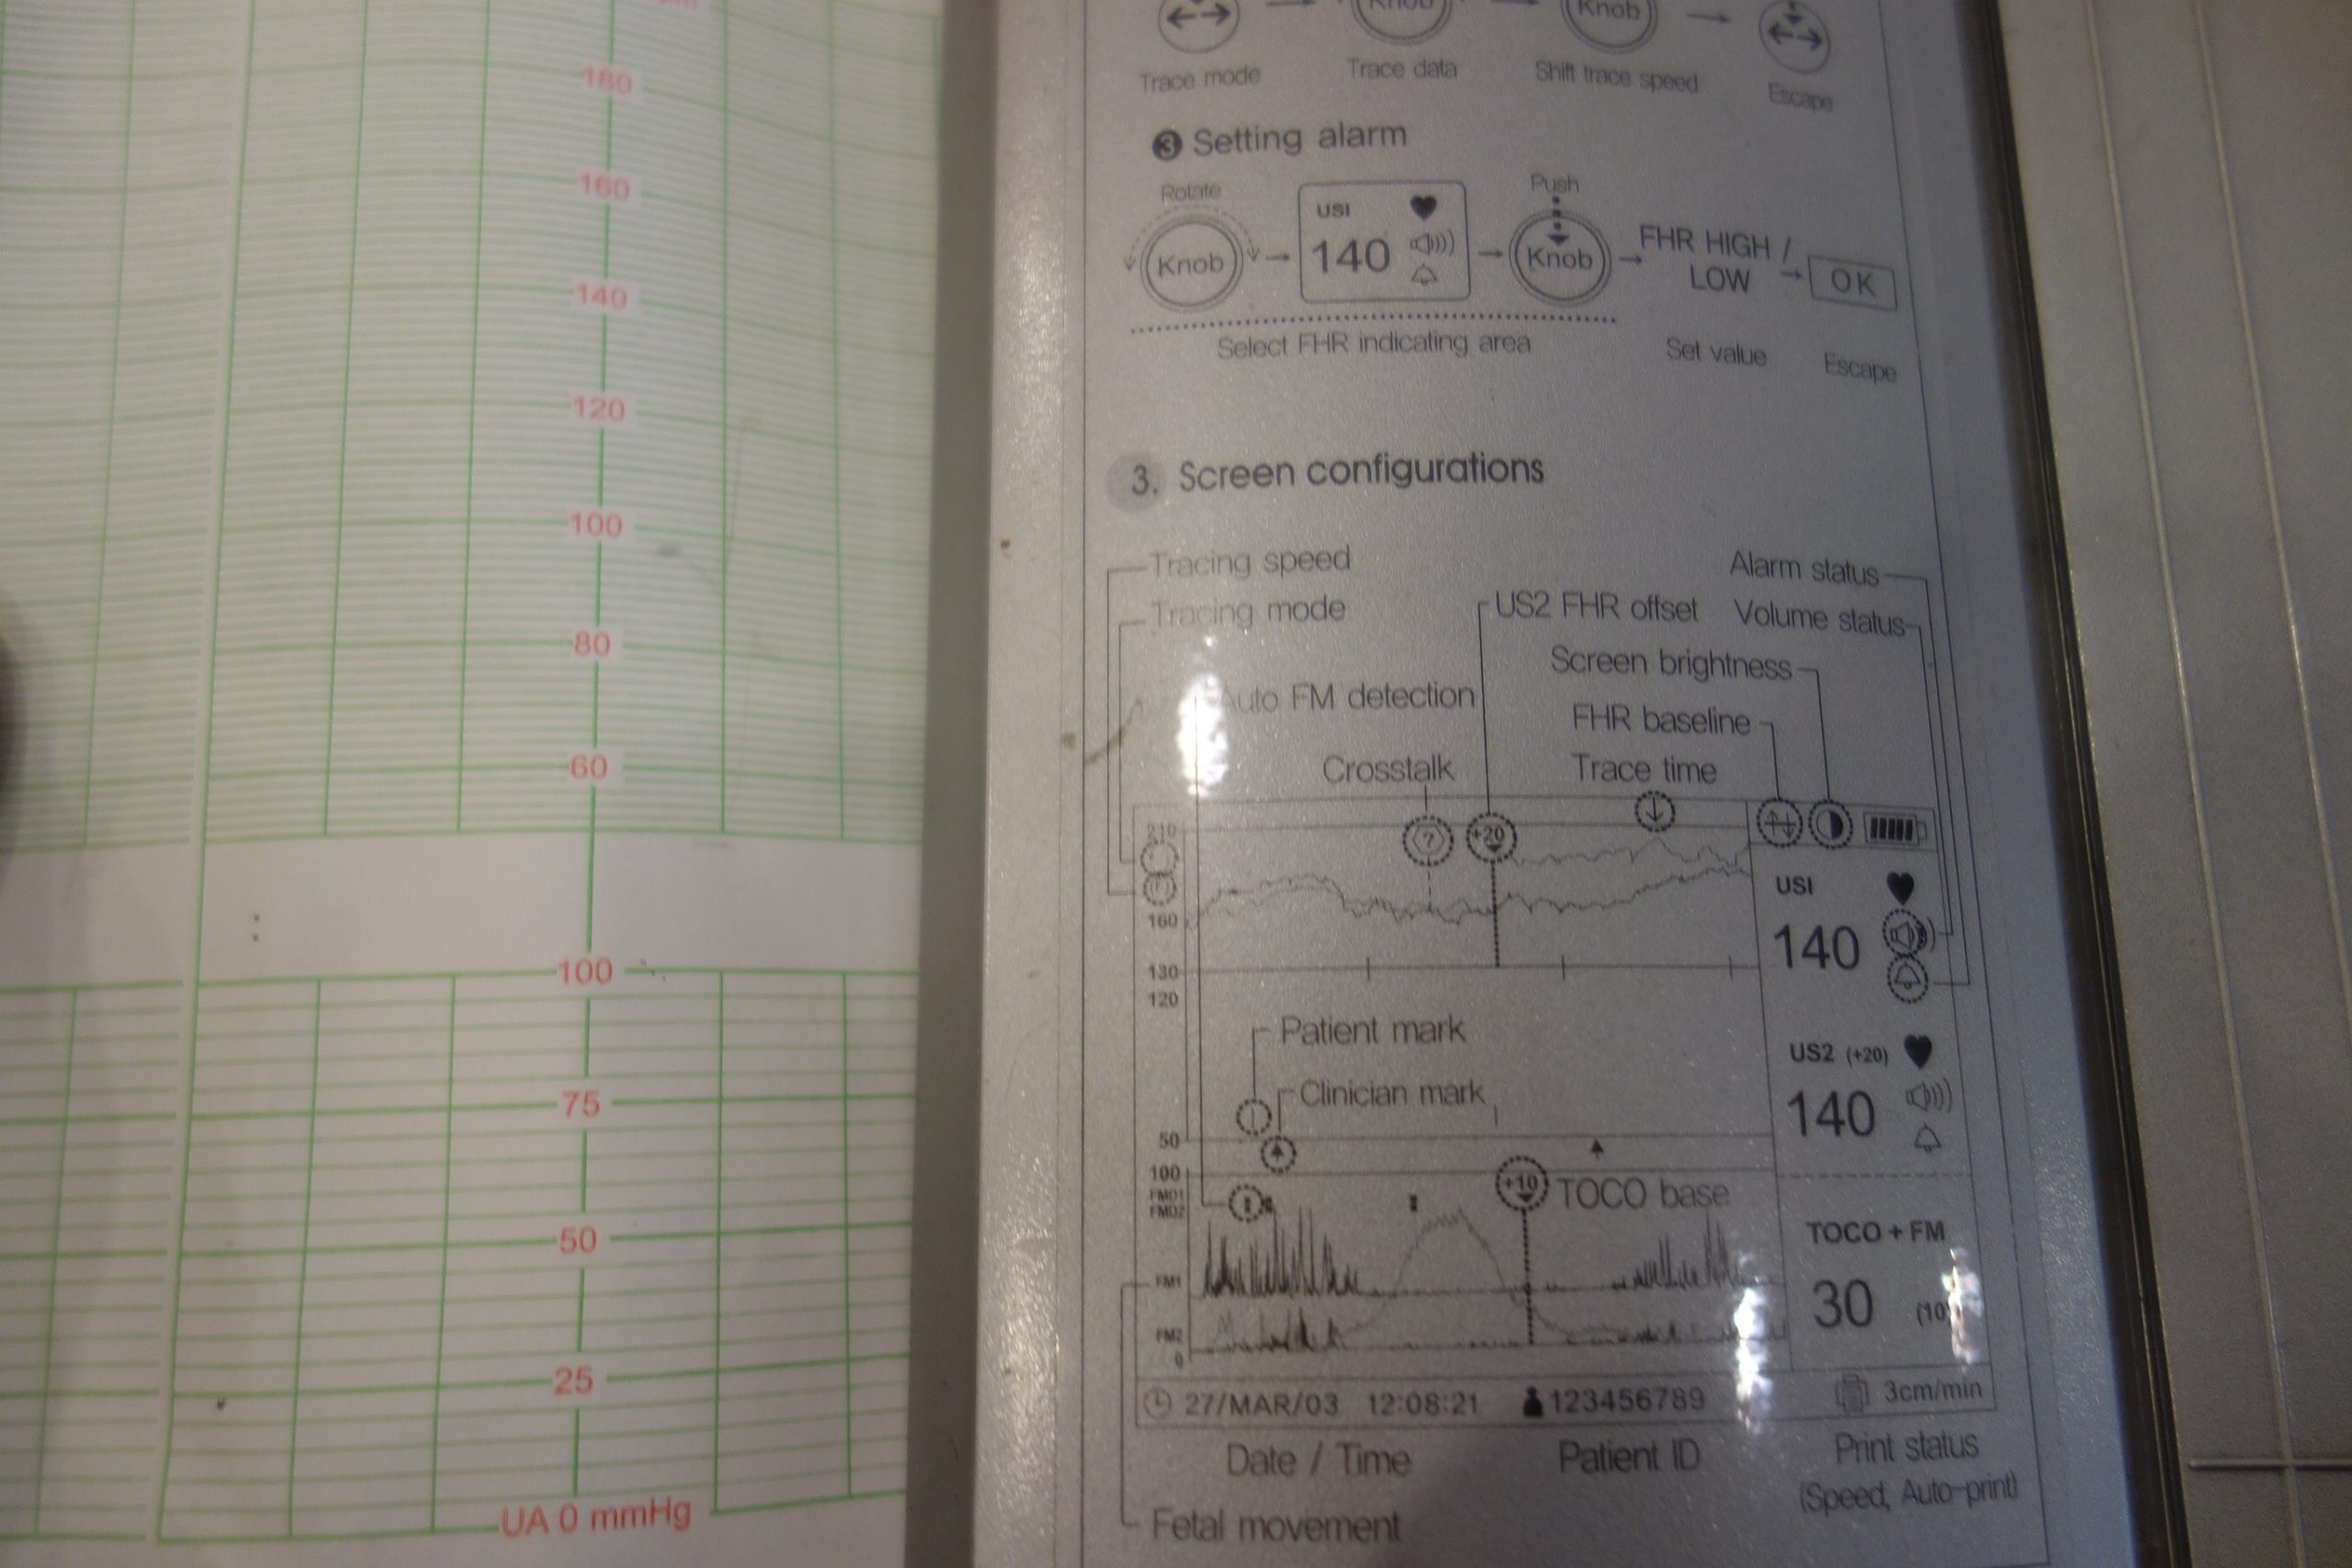 180
160
140
120
100
80
60
100
75
50
25
UA 0 mmHg
Knob
Knob
Trace mode
Trace data
Shift trace speed
Escape
3 Setting alarm
Rotate
Knob
USI
140
Push
Knob
FHR HIGH /
LOW
OK
Select FHR indicating area
Set value
Escape
3. Screen configurations
Tracing speed
Tracing mode
Auto FM detection
Crosstalk
US2 FHR offset
Alarm status
Volume status
Screen brightness
FHR baseline
Trace time
210
160
130
120
50
?
+20
USI
140
Patient mark
Clinician mark
US2 (+20)
140
100
FMD1
FMD2
+10
TOCO base
FM1
FM2
0
TOCO + FM
30
(10)
27/MAR/03 12:08:21
123456789
3cm/min
Date / Time
Patient ID
Print status
(Speed, Auto-print)
Fetal movement